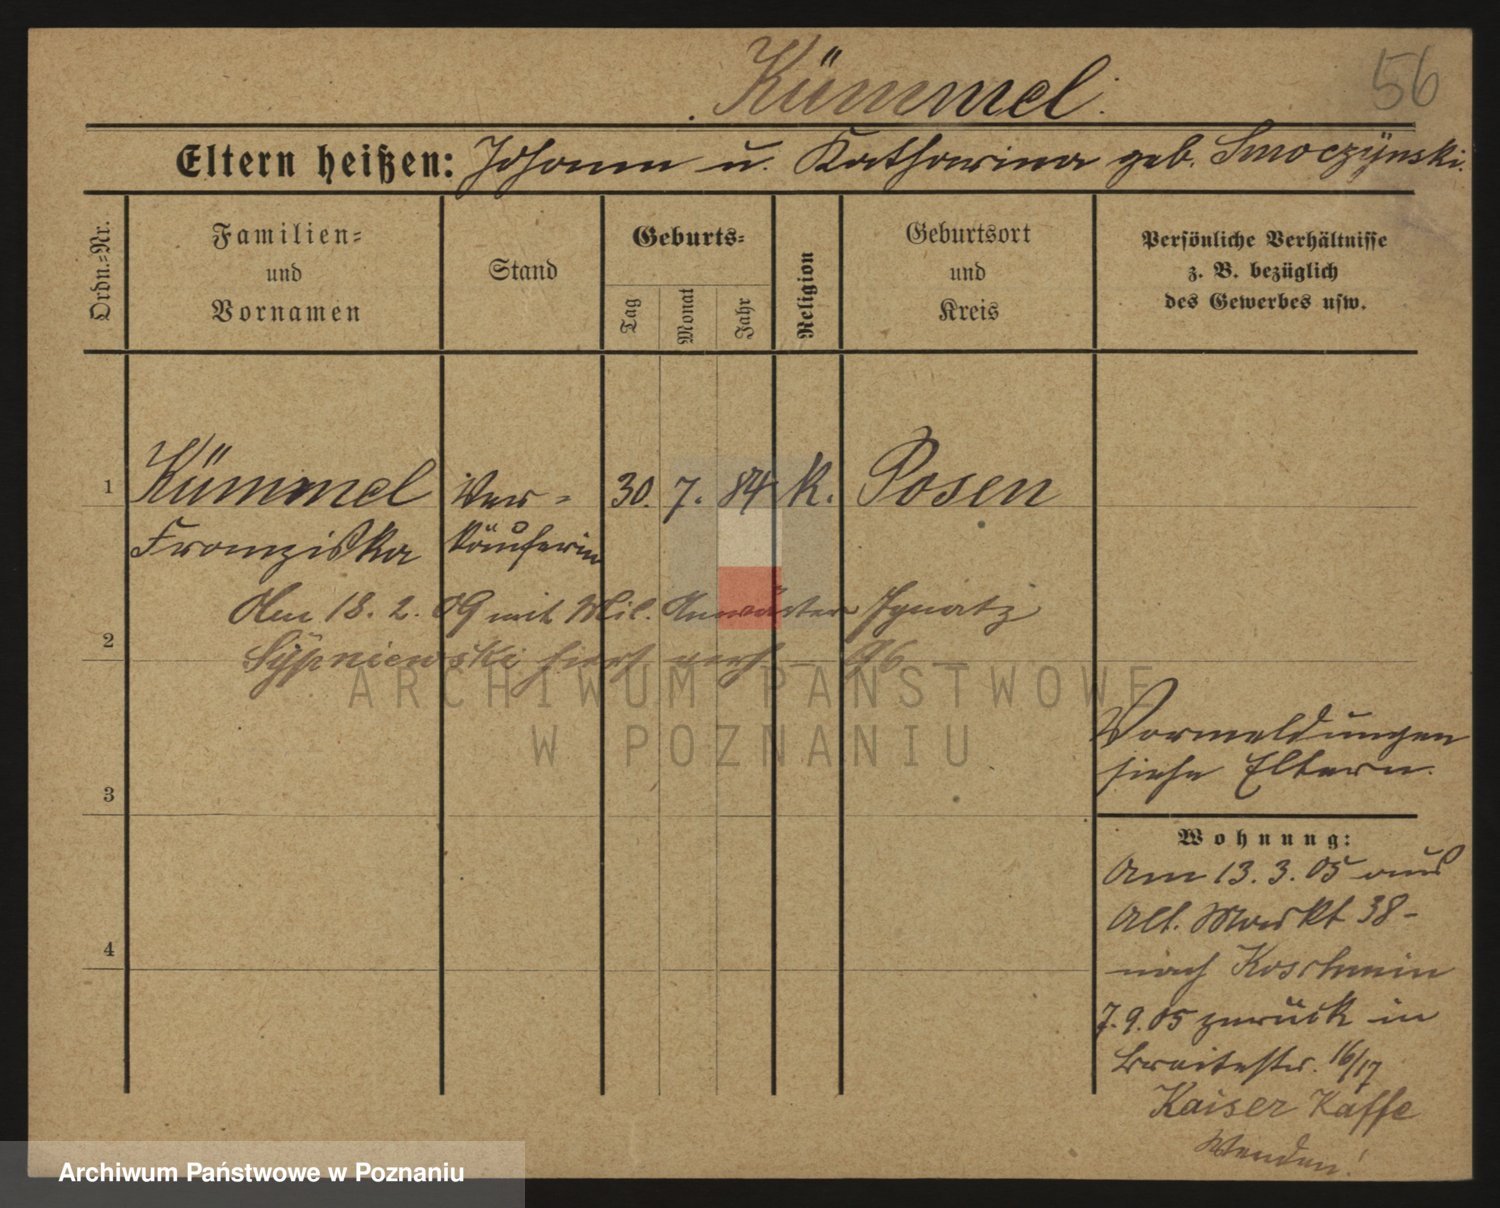 56
Kümmel.
Eltern heißen: Johann u. Katharina geb. Smoczÿnski.
Ordn.=Nr.
Familien=
und
Vornamen
Stand
Geburts=
Tag
Monat
Jahr
Religion
Geburtsort
und
Kreis
Persönliche Verhältnisse
z. B. bezüglich
des Gewerbes usw.
1
Kümmel Ver= 30. 7. 84 K. Posen
Franziska käuferin
Am 18. 2. 09 mit Mil. Anwärter Ignatz
2
Sÿpniewski hier verh –
ARCHIWUM PAŃSTWOWE
W POZNANIU
Vormeldungen
siehe Eltern.
3
Wohnung:
Am 13. 3. 05 aus
Alt. Markt 38 –
4
nach Koschmin
7. 9. 05 zurück in
Breitestr. 16/17
Kaiser Kaffe
Wenden!
Archiwum Państwowe w Poznaniu